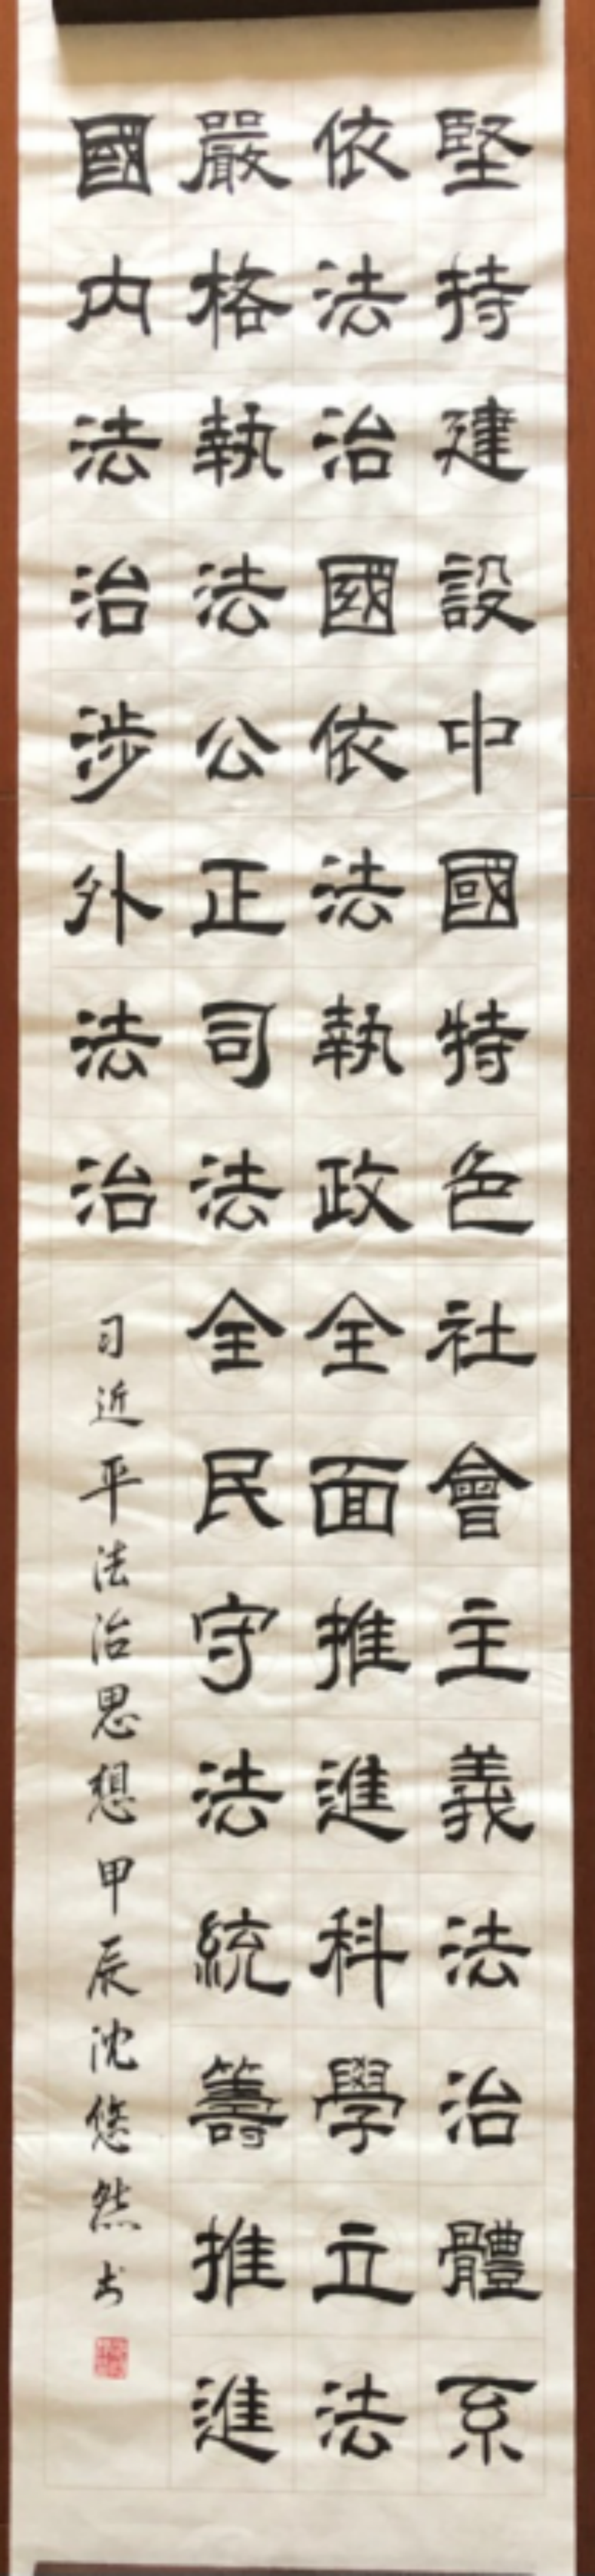 堅持建設中國特色社會主義法治體系
依法治國依法執政全面推進科學立法
嚴格執法公正司法全民守法統籌推進
國內法治涉外法治
习近平法治思想甲辰沈悠然书